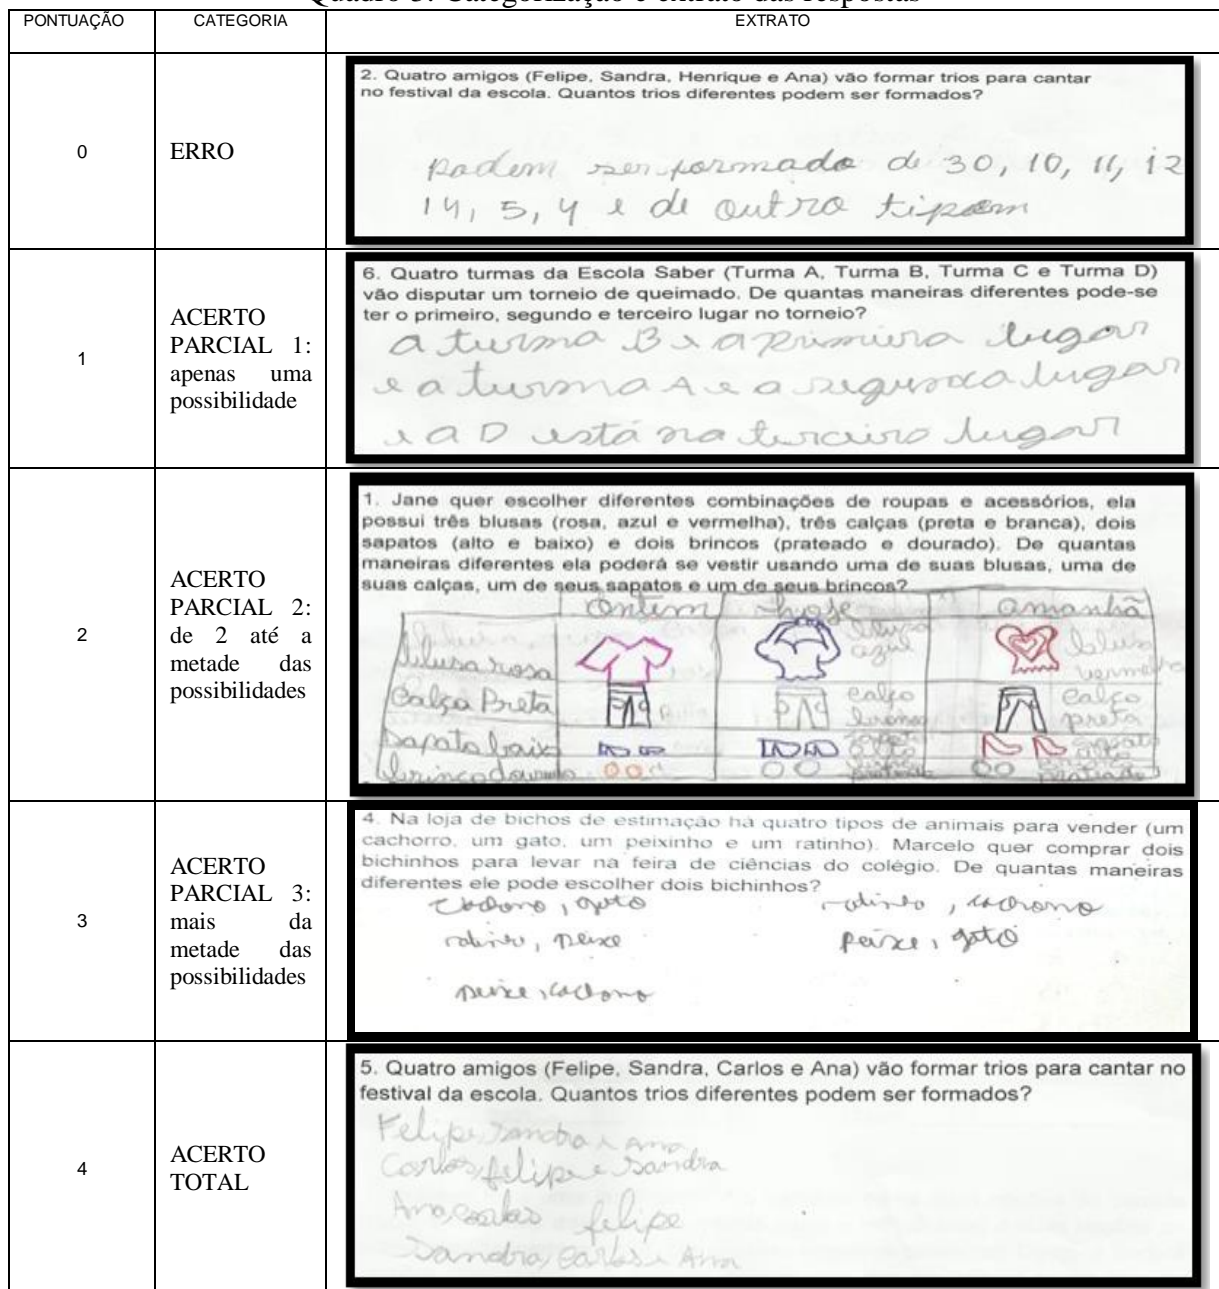 Quadro 3: Categorização e extrato das respostas
PONTUAÇÃO CATEGORIA EXTRATO
0
ERRO
2. Quatro amigos (Felipe, Sandra, Henrique e Ana) vão formar trios para cantar
no festival da escola. Quantos trios diferentes podem ser formados?
podem ser formado de 30, 10, 11, 12
14, 5, 4 e de outro
1
ACERTO
PARCIAL 1:
apenas uma
possibilidade
6. Quatro turmas da Escola Saber (Turma A, Turma B, Turma C e Turma D)
vão disputar um torneio de queimado. De quantas maneiras diferentes pode-se
ter o primeiro, segundo e terceiro lugar no torneio?
a turma B e a primeira lugar
e a turma A e a lugar
e a D está na terceiro lugar
2
ACERTO
PARCIAL 2:
de 2 até a
metade das
possibilidades
1. Jane quer escolher diferentes combinações de roupas e acessórios, ela
possui três blusas (rosa, azul e vermelha), três calças (preta e branca), dois
sapatos (alto e baixo) e dois brincos (prateado e dourado). De quantas
maneiras diferentes ela poderá se vestir usando uma de suas blusas, uma de
suas calças, um de seus sapatos e um de seus brincos?
ontem hoje amanhã
blusa rosa
blusa
azul
blusa
Calça Preta
calça
calça
preta
Sapato baixo
3
ACERTO
PARCIAL 3:
mais da
metade das
possibilidades
4. Na loja de bichos de estimação há quatro tipos de animais para vender (um
cachorro, um gato, um peixinho e um ratinho). Marcelo quer comprar dois
bichinhos para levar na feira de ciências do colégio. De quantas maneiras
diferentes ele pode escolher dois bichinhos?
gato
peixe peixe, gato
peixe
4
ACERTO
TOTAL
5. Quatro amigos (Felipe, Sandra, Carlos e Ana) vão formar trios para cantar no
festival da escola. Quantos trios diferentes podem ser formados?
Felipe, Sandra e Ana
Carlos, felipe e Sandra
Ana, carlos felipe
Sandra, Carlos e Ana